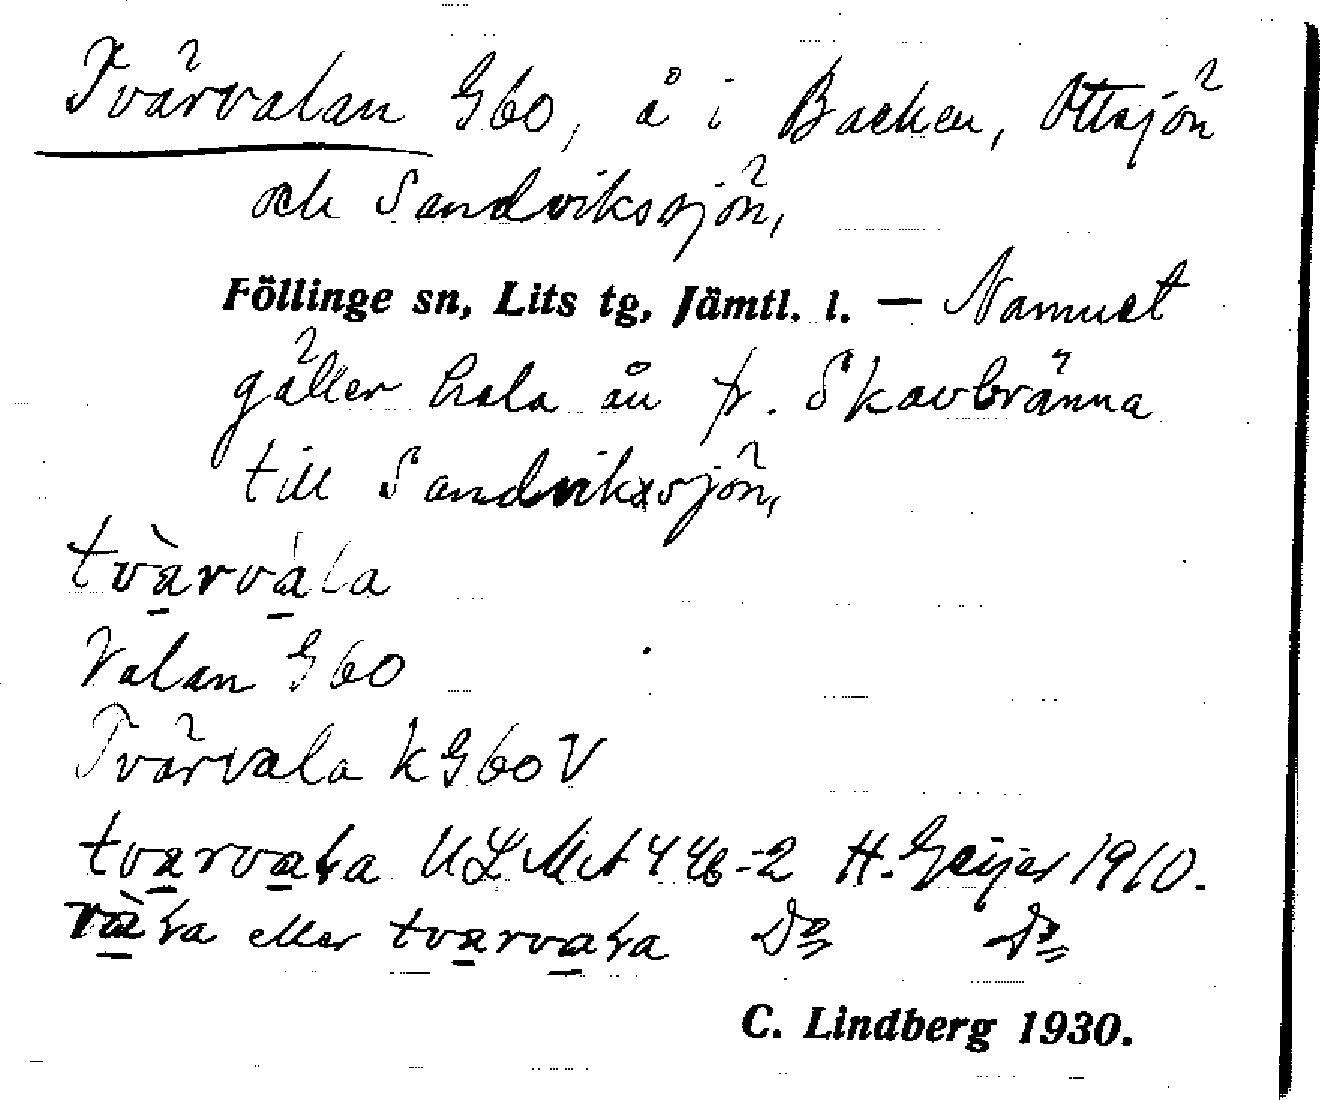 Tvärvalan G60, å i Backen, Ottsjön
och Sandvikssjön,
Föllinge sn, Lits tg, Jämtl. l. — Namnet
gäller hela ån fr. Skavbränna
till Sandvikssjön,
tvàrvála
Valan G60
Tvärvala k G60 V
tvarvaɫa ULMA 446-2 H. Geijer 1910.
vàɫa eller tvarvaɫa Do Do
C. Lindberg 1930.